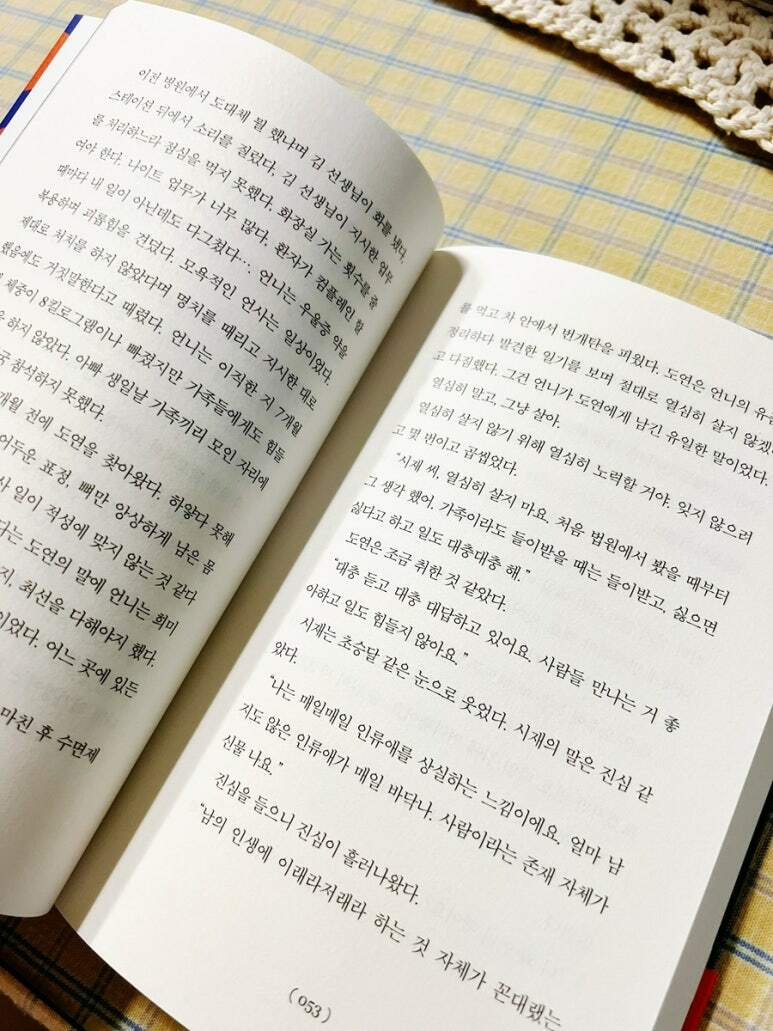 이전 병원에서 도대체 뭘 했냐며 김 선생님이 화를 냈다.
스테이션 뒤에서 소리를 질렀다. 김 선생님이 지시한 업무
를 처리하느라 점심을 먹지 못했다. 화장실 가는 횟수를 줄
여야 한다. 나이트 업무가 너무 많다. 환자가 컴플레인 할
때마다 내 일이 아닌데도 다그쳤다…. 언니는 우울증 약을
복용하며 괴롭힘을 견뎠다. 모욕적인 언사는 일상이었다.
제대로 처치를 하지 않았다며 명치를 때리고 지시한 대로
했음에도 거짓말한다고 때렸다. 언니는 이직한 지 7개월
체중이 8킬로그램이나 빠졌지만 가족들에게도 힘들
하지 않았다. 아빠 생일날 가족끼리 모인 자리에
참석하지 못했다.
개월 전에 도연을 찾아왔다. 하얗다 못해
어두운 표정, 뼈만 앙상하게 남은 몸
일이 적성에 맞지 않는 것 같다
다는 도연의 말에 언니는 희미
지, 최선을 다해야지 했다.
이었다. 어느 곳에 있든
마친 후 수면제
를 먹고 차 안에서 번개탄을 피웠다. 도연은 언니의 유
정리하다 발견한 일기를 보며 절대로 열심히 살지 않겠
고 다짐했다. 그건 언니가 도연에게 남긴 유일한 말이었다.
열심히 말고, 그냥 살아.
열심히 살지 않기 위해 열심히 노력할 거야. 잊지 않으려
고 몇 번이고 곱씹었다.
“시제 씨. 열심히 살지 마요. 처음 법원에서 봤을 때부터
그 생각 했어. 가족이라도 들이받을 때는 들이받고, 싫으면
싫다고 하고 일도 대충대충 해.”
도연은 조금 취한 것 같았다.
“대충 듣고 대충 대답하고 있어요. 사람들 만나는 거 좋
아하고 일도 힘들지 않아요.”
시제는 초승달 같은 눈으로 웃었다. 시제의 말은 진심 같
았다.
“나는 매일매일 인류애를 상실하는 느낌이에요. 얼마 남
지도 않은 인류애가 매일 바닥나. 사람이라는 존재 자체가
신물 나요.”
진심을 들으니 진심이 흘러나왔다.
“남의 인생에 이래라저래라 하는 것 자체가 꼰대랬는
(053)